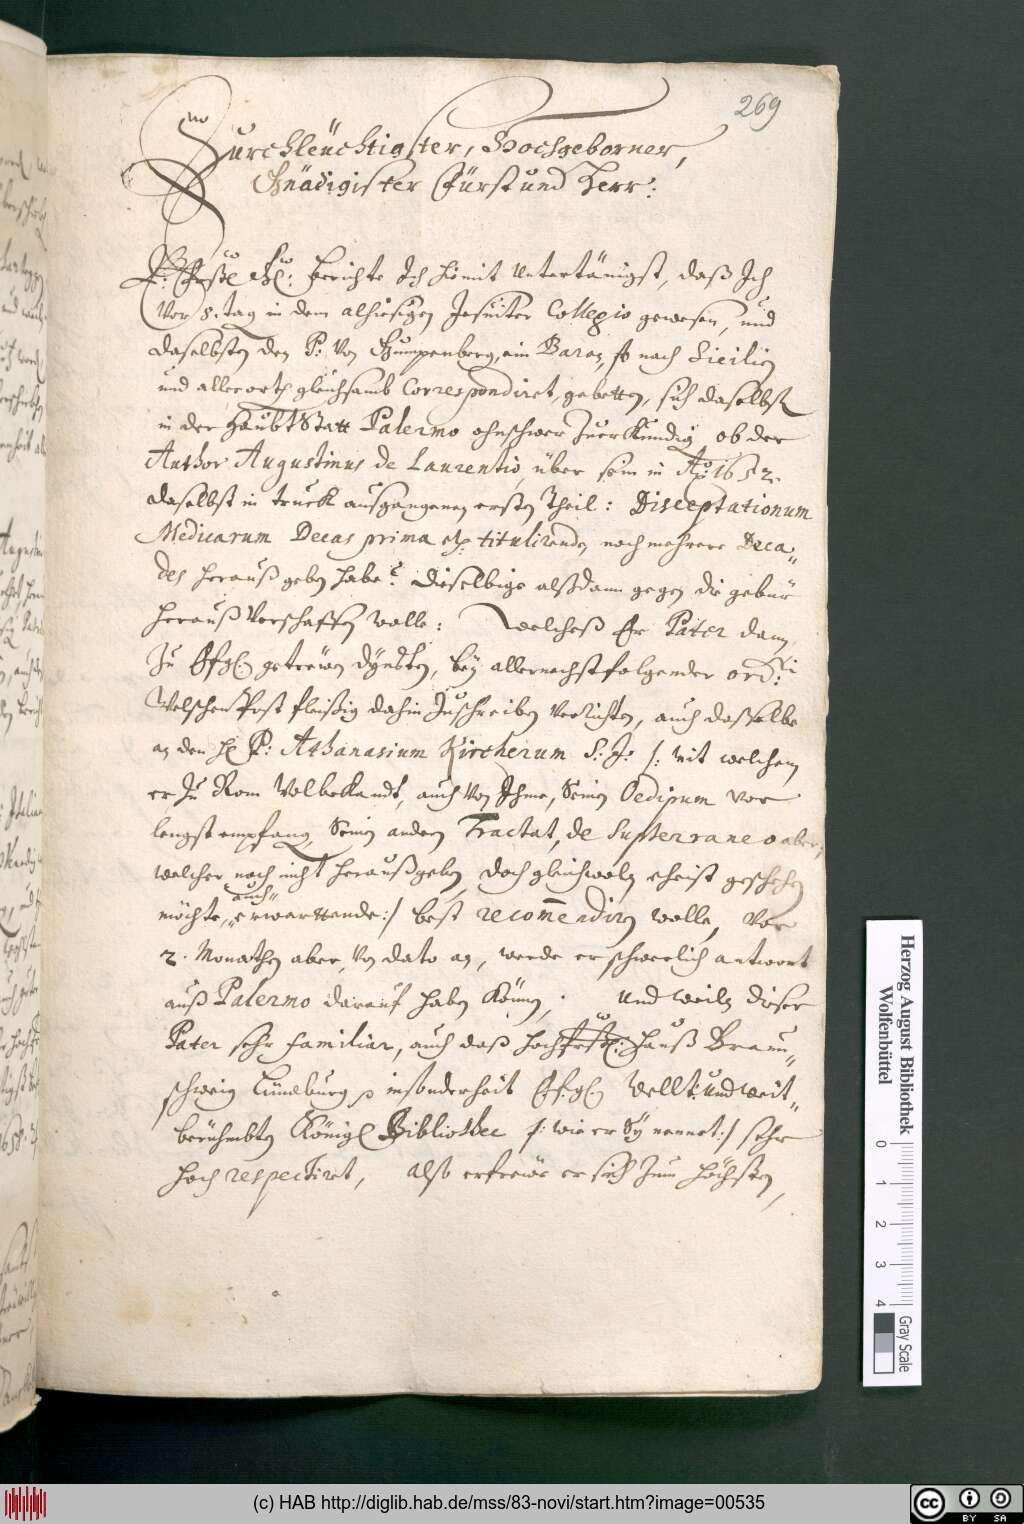 269
Durchleüchtigster, Hochgeborner,
Gnädigister Fürst und Herr:
berichte Ich hiemit Untertänigst, daß Ich
Vor 8. tag in dem alhiesigen Jesuiter Collegio gewesen, und
daselbsten den P: Von Gumpenberg, ein Baron, so nach Sicilien
und aller orth gleichsamb Correspondiret, gebetten, sich daselbst
in der HaubtStatt Palermo ohnschwer Zuerkundig, ob der
Author Augustinus de Laurentio, über sein in Ao: 1652.
daselbst in truckh ausgangenen ersten Theil: Disceptationum
Medicarum Decas prima etc titulirenden noch mehrere Deca-
des herauß geben habe? dieselbige alßdann gegen die gebür
herauß Verschaffen wolle: Welcheß Er Pater dann
Zu getrewen Dynsten, bey allernechstfolgender ord:ri
Welschen Post fleißig dahin Zuschreiben Verrichten, auch dasselbe
an den H P: Athanasium Kircherum S: J: /: mit welchem
er Zu Rom Wolbekandt, auch Von Ihme, Seinen Oedipum vor
lengst empfangen, Seinen andern Tractat, de Supterraneo aber,
welcher noch nicht heraußgeben, doch gleichwoln ehist geschehen
möchte, auch erwarttende :/ best recommendiren wolle, Vor
2. Monathen aber, Von dato an, werde er schwerlich antwort
auß Palermo darauf haben können. Und weiln dieser
Pater sehr familiar, auch daß hochfrstl: Hauß Braun-
schweig Lünäburg insonderheit Welt: und weit-
berühmbten Königl Bibliothec /: wie er Sy nennet :/ sehr
hoch respectiret, also erfrewe er sich Zum höchsten,
Herzog August Bibliothek
Wolfenbüttel
0 1 2 3 4
Gray Scale
(c) HAB http://diglib.hab.de/mss/83-novi/start.htm?image=00535
cc BY SA